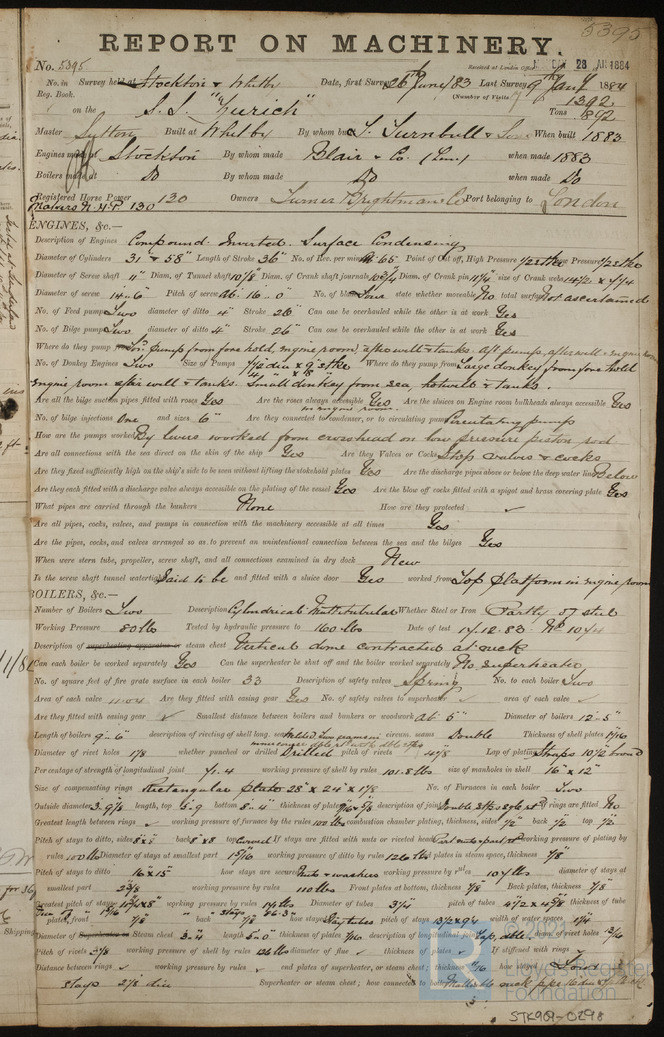 5395
REPORT ON MACHINERY.
No. 5395 Received at London Office 28 JAN 1884
No. in Survey held at Stockton & Whitby Date, first Survey 26th June/83 Last Survey 9th Jany 1884
Reg. Book. (Number of Visits
on the S.S. "Zurich" Tons 1392 892
Master Sutton Built at Whitby By whom built T. Turnbull & Son When built 1883
Engines made at Stockton By whom made Blair & Co. (Lim) when made 1883
Boilers made at Do By whom made Do when made Do
Registered Horse Power 130 Owners Turner Brightman & Co Port belonging to London
Makers N.H.P. 130
ENGINES, &c.—
Description of Engines Compound Inverted Surface Condensing
Diameter of Cylinders 31 & 58" Length of Stroke 36" No. of Rev. per minute 65 Point of Cut off, High Pressure 1/2 stke Low Pressure 1/2 stke
Diameter of Screw shaft 11" Diam. of Tunnel shaft 10 1/8 Diam. of Crank shaft journals 10 3/4 Diam. of Crank pin 11 1/4 size of Crank webs 14 1/2 x 7 1/4
Diameter of screw 14-6" Pitch of screw 16-0" No. of blades Four state whether moveable No total surface Not ascertained
No. of Feed pumps Two diameter of ditto 4" Stroke 26" Can one be overhauled while the other is at work Yes
No. of Bilge pumps Two diameter of ditto 4" Stroke 26" Can one be overhauled while the other is at work Yes
Where do they pump from For'd pump from fore hold, engine room, after well & tanks. Aft pump, after well & engine room
No. of Donkey Engines Two Size of Pumps Where do they pump from Large donkey from fore hold
engine room after well & tanks. Small donkey from sea, hotwell & tanks.
Are all the bilge suction pipes fitted with roses Yes Are the roses always accessible Yes Are the sluices on Engine room bulkheads always accessible Yes
in engine room
No. of bilge injections One and sizes 6" Are they connected to condenser, or to circulating pump Circulating pump
How are the pumps worked By levers worked from crosshead on low pressure piston rod
Are all connections with the sea direct on the skin of the ship Yes Are they Valves or Cocks Stop valves & cocks
Are they fixed sufficiently high on the ship's side to be seen without lifting the stokehold plates Yes Are the discharge pipes above or below the deep water line Below
Are they each fitted with a discharge valve always accessible on the plating of the vessel Yes Are the blow off cocks fitted with a spigot and brass covering plate Yes
What pipes are carried through the bunkers None How are they protected
Are all pipes, cocks, valves, and pumps in connection with the machinery accessible at all times Yes
Are the pipes, cocks, and valves arranged so as to prevent an unintentional connection between the sea and the bilges Yes
When were stern tube, propeller, screw shaft, and all connections examined in dry dock New
Is the screw shaft tunnel watertight Said to be and fitted with a sluice door Yes worked from Top platform in engine room
BOILERS, &c.—
Number of Boilers Two Description Cylindrical Multitubular Whether Steel or Iron Partly of steel
Working Pressure 80 lbs Tested by hydraulic pressure to 160 lbs Date of test 14.12.83 No 1074
Description of superheating apparatus or steam chest Vertical dome contracted at neck
Can each boiler be worked separately Yes Can the superheater be shut off and the boiler worked separately No superheater
No. of square feet of fire grate surface in each boiler 33 Description of safety valves Spring No. to each boiler Two
Area of each valve 11.04 Are they fitted with easing gear Yes No. of safety valves to superheater area of each valve
Are they fitted with easing gear Smallest distance between boilers and bunkers or woodwork ab. 5" Diameter of boilers 12-5"
Length of boilers 9-6" description of riveting of shell long. seams circum. seams Double Thickness of shell plates
Diameter of rivet holes 1 1/8 whether punched or drilled Drilled pitch of rivets 4 7/8 Lap of plating Straps 10 1/2 broad
Percentage of strength of longitudinal joint 71.4 working pressure of shell by rules 101.8 lbs size of manholes in shell 16" x 12"
Size of compensating rings Rectangular plate 28" x 24" x 1 1/8 No. of Furnaces in each boiler Two
Outside diameter 3-9 7/8 length, top 5-9 bottom 8-4 thickness of plates description of joint if rings are fitted No
Greatest length between rings working pressure of furnace by the rules combustion chamber plating, thickness, sides 1/2" back 1/2" top 1/2
Pitch of stays to ditto, sides 8 x 8 back 8" x 8 top Curved If stays are fitted with nuts or riveted heads working pressure of plating by
rules 100 lbs Diameter of stays at smallest part working pressure of ditto by rules plates in steam space, thickness 7/8"
Pitch of stays to ditto 16" x 15" how stays are secured Nuts & washers working pressure by rules 104 lbs diameter of stays at
smallest part working pressure by rules 110 lbs Front plates at bottom, thickness 7/8" Back plates, thickness 7/8"
Greatest pitch of stays working pressure by rules Diameter of tubes 3 1/4" pitch of tubes thickness of tube
plates, front back how stayed Stay tubes pitch of stays width of water spaces
Diameter of Superheater or Steam chest 3-4 length 5-0" thickness of plates 7/16 description of longitudinal joint Lap, dble diam. of rivet holes 13/16
Pitch of rivets working pressure of shell by rules diameter of flue thickness of plates If stiffened with rings
Distance between rings working pressure by rules end plates of superheater, or steam chest; thickness how stayed Four
stays 2 1/8 dia Superheater or steam chest; how connected to boiler
© 2021
Lloyd's Register
Foundation
STK909-0298